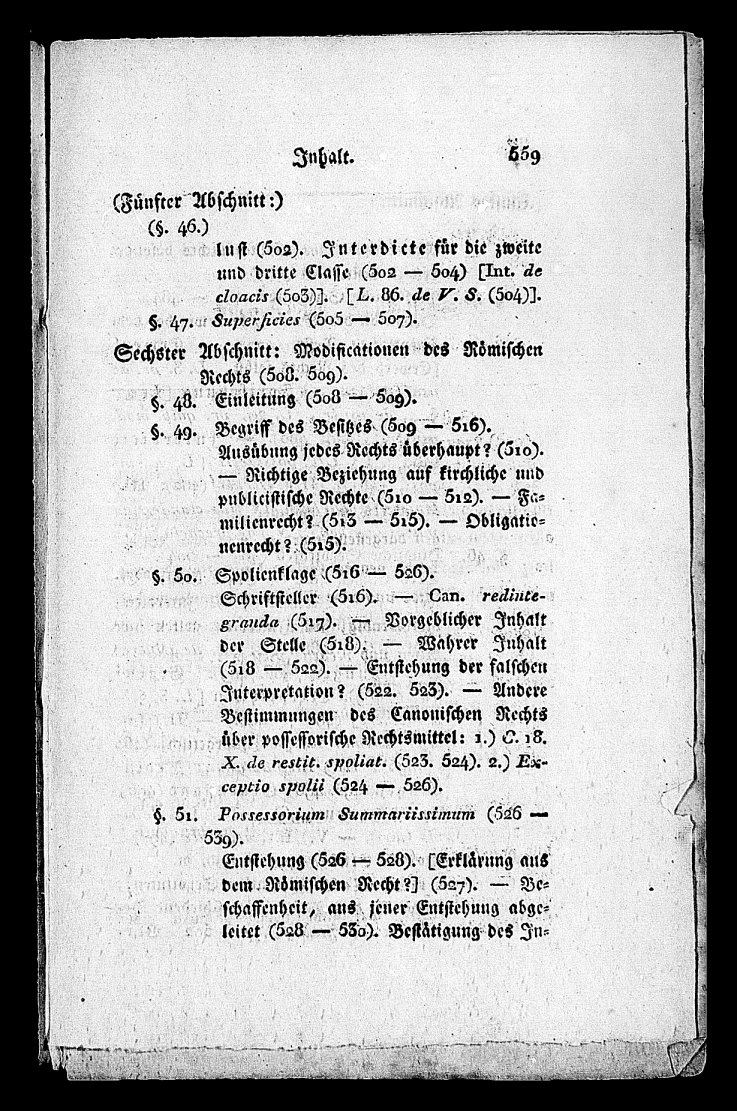 Inhalt. 559
(Fünfter Abschnitt:)
(§. 46.)
lust (502). Interdicte für die zweite
und dritte Classe (502 — 504) [Int. de
cloacis (503)]. [L. 86. de V. S. (504)].
§. 47. Superficies (505 — 507).
Sechster Abschnitt: Modificationen des Römischen
Rechts (508. 509).
§. 48. Einleitung (508 — 509).
§. 49. Begriff des Besitzes (509 — 516).
Ausübung jedes Rechts überhaupt? (510).
— Richtige Beziehung auf kirchliche und
publicistische Rechte (510 — 512). — Fa-
milienrecht? (513 — 515). — Obligatio-
nenrecht? (515).
§. 50. Spolienklage (516 — 526).
Schriftsteller (516). — Can. redinte-
granda (517). — Vorgeblicher Inhalt
der Stelle (518). — Wahrer Inhalt
(518 — 522). — Entstehung der falschen
Interpretation? (522. 523). — Andere
Bestimmungen des Canonischen Rechts
über possessorische Rechtsmittel: 1.) C. 18.
X. de restit. spoliat. (523. 524). 2.) Ex-
ceptio spolii (524 — 526).
§. 51. Possessorium Summariissimum (526 —
539).
Entstehung (526 — 528). [Erklärung aus
dem Römischen Recht?] (527). — Be-
schaffenheit, aus jener Entstehung abge-
leitet (528 — 530). Bestätigung des In-